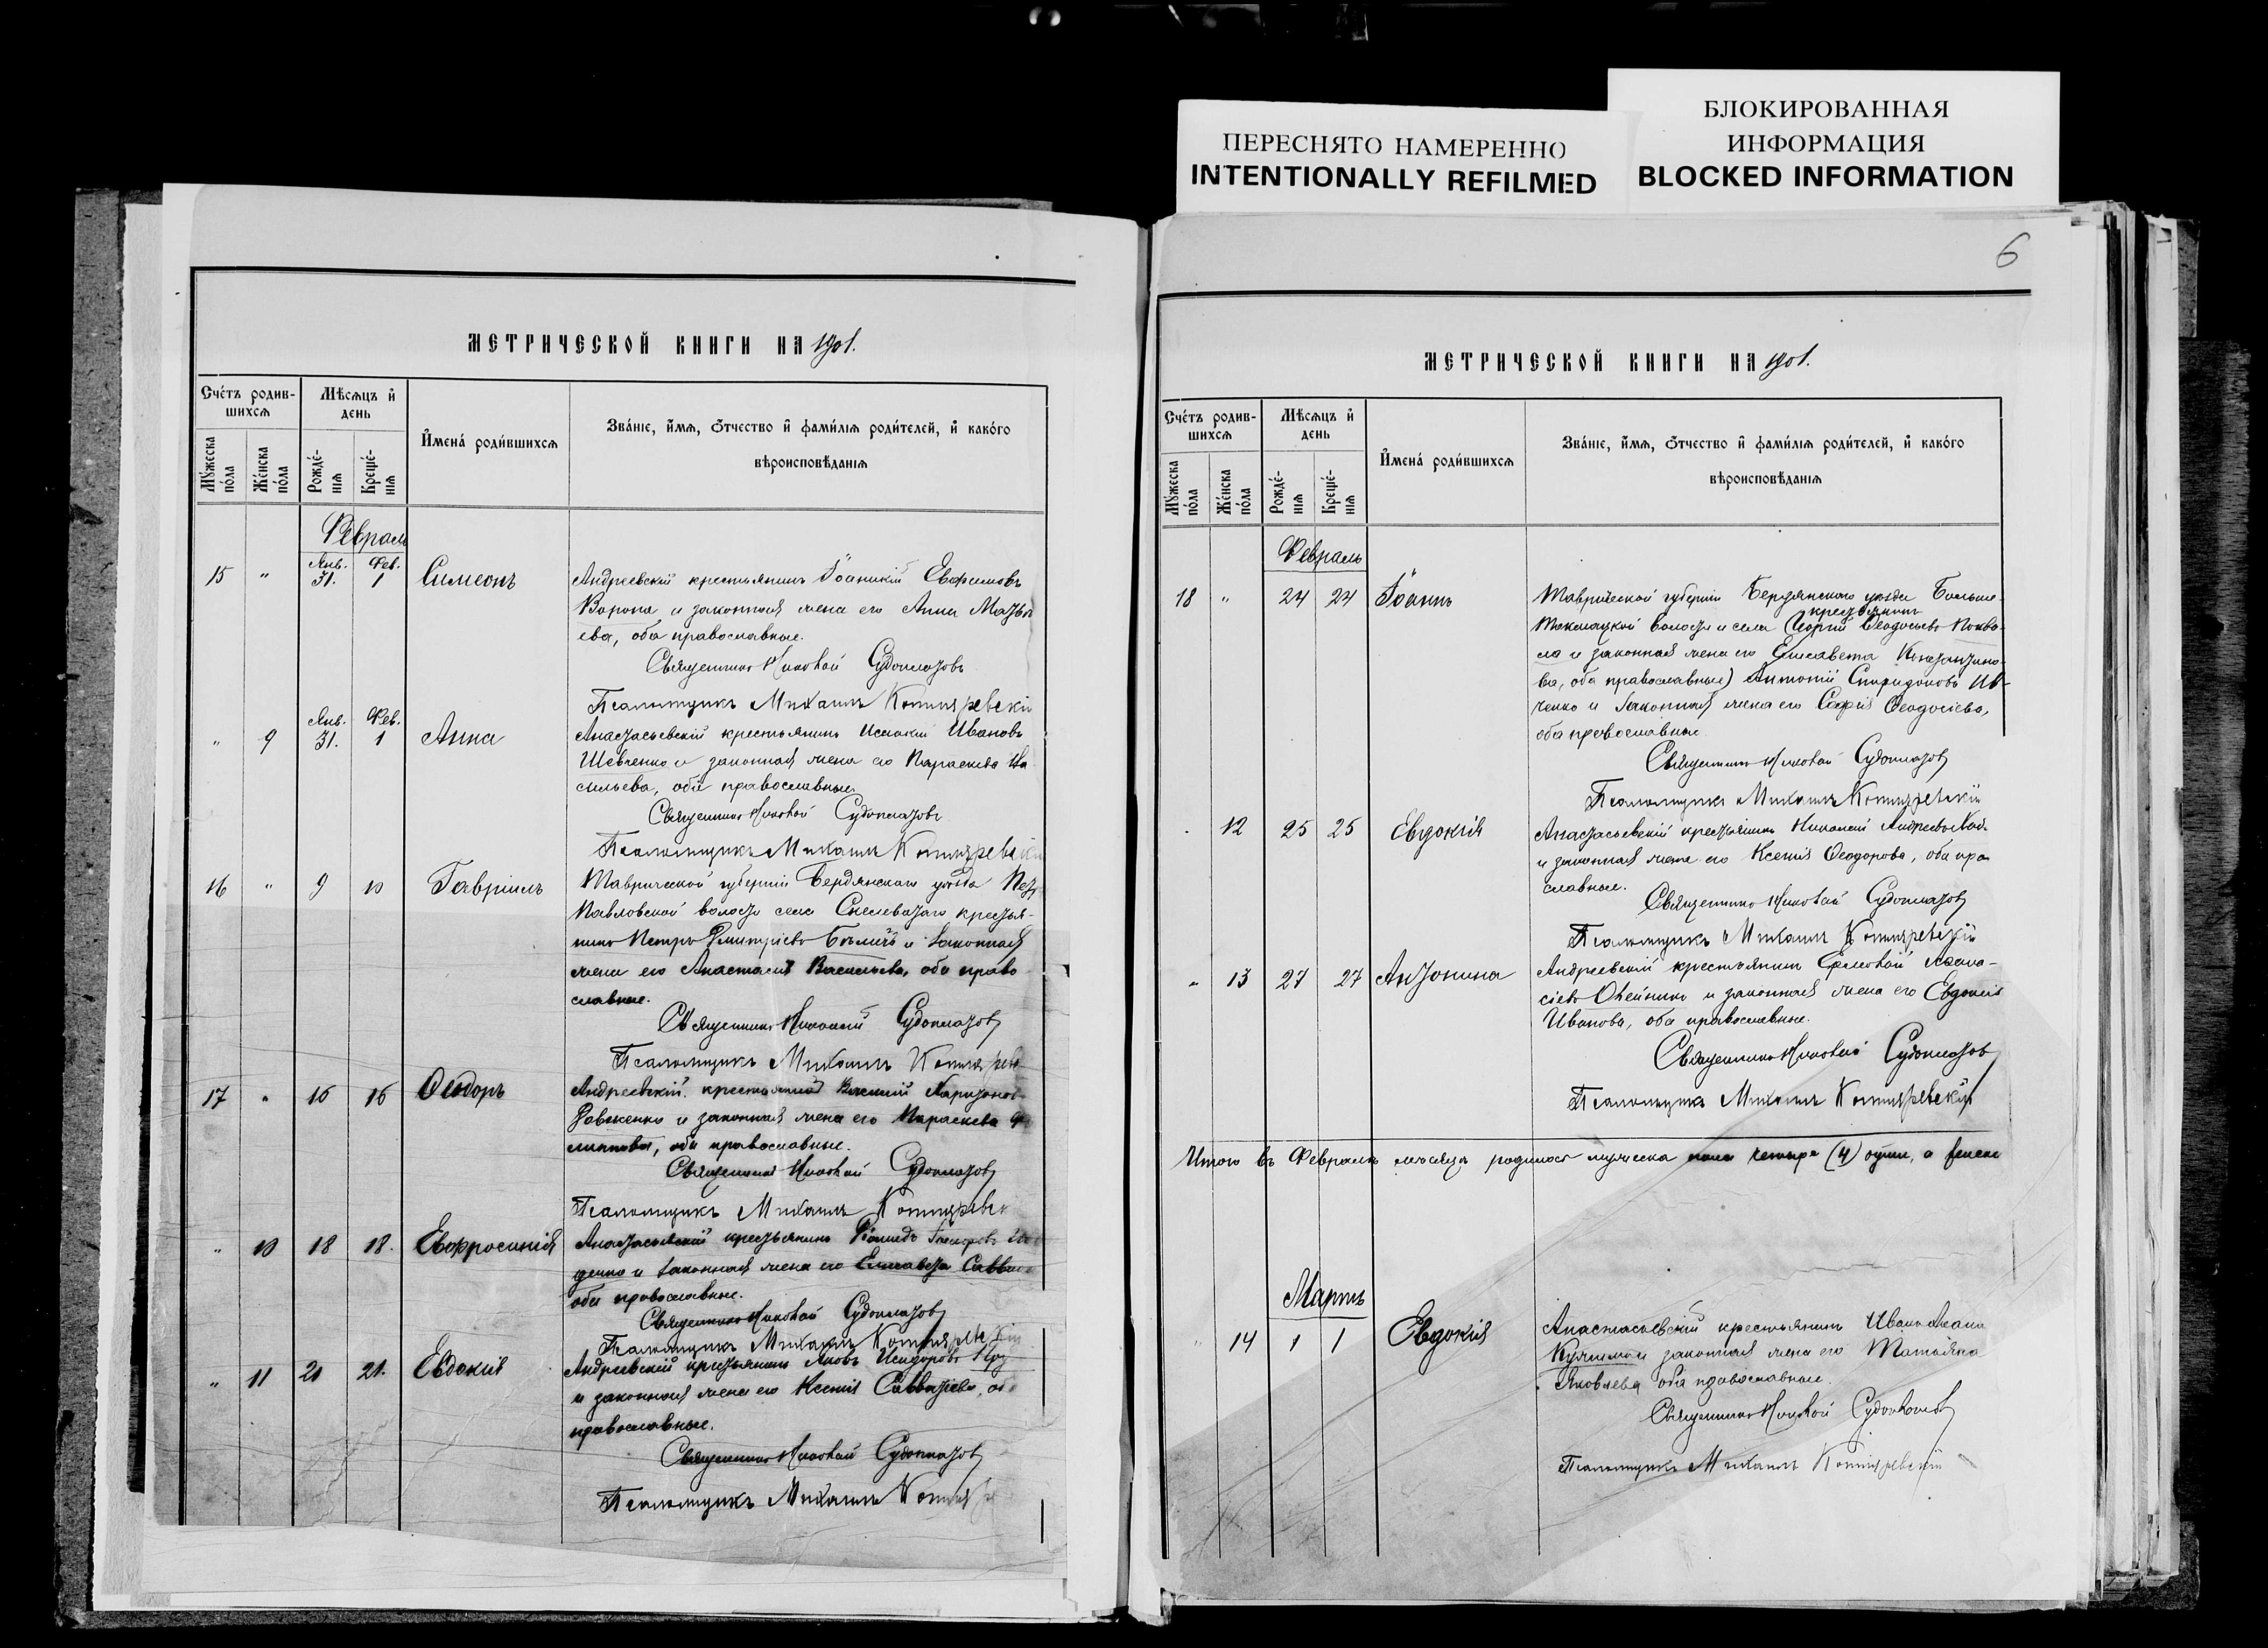 ПЕРЕСНЯТО НАМЕРЕННО
INTENTIONALLY REFILMED
БЛОКИРОВАННАЯ
ИНФОРМАЦИЯ
BLOCKED INFORMATION
МЕТРИЧЕСКОЙ КНИГИ НА 1901.
Сче́тъ родив-
шихсѧ
Мѣсѧцъ и҆
день
И҆мена́ роди́вшихсѧ
Зва́нїе, и҆́мѧ, ѻ҆́тчество и҆ фами́лїѧ роди́телей, и҆ како́гѡ
вѣроисповѣ́данїѧ
Мꙋ́жеска по́ла
Же́нска по́ла
Рожде́-нїѧ
Креще́-нїѧ
Февраль
15 " Янв. 31. Фев. 1 Симеонъ
Андреевскій крестьянинъ Іоанникій Евфимовъ
Ворона и законная жена его Анна
ева, оба православные.
Священникъ Николай Судоплатовъ
Псаломщикъ Михаилъ Котляревскі
" 9 Янв. 31. Фев. 1 Анна
Анастасьевскій крестьянинъ Исаакій Ивановъ
Шевченко и законная жена его Параскева Ва
сильева, оба православные.
Священникъ Николай Судоплатовъ
Псаломщикъ Михаилъ Котляревскі
16 " 9 10 Гавріилъ
Таврической губерніи Бердянскаго уѣзда Пет
Павловской волости села крестья-
нинъ Петръ Дмитріевъ и законная
жена его Анастасія Васильева, оба право
славные.
Священникъ Николай Судоплатовъ
Псаломщикъ Михаилъ Котлярев
17 " 16 16 Ѳеодоръ
Андреевскій крестьянинъ Василій Харитоновъ
Довженко и законная жена его Параскева Ф
липпова, оба православные.
Священникъ Николай Судоплатовъ
Псаломщикъ Михаилъ Котляревск
" 10 18 18. Евфросинія
Анастасьевскій крестьянинъ
ценко и законная жена его Елисавета Савви
оба православные.
Священникъ Николай Судоплатовъ
Псаломщикъ Михаилъ Котляревскій
" 11 21 21. Евдокія
Андреевскій крестьянинъ Яковъ Исидоровъ
и законная жена его Ксенія Савватіева, об
православные.
Священникъ Николай Судоплатовъ
Псаломщикъ Михаилъ Котляр
6
МЕТРИЧЕСКОЙ КНИГИ НА 1901.
Сче́тъ родив-
шихсѧ
Мѣсѧцъ и҆
день
И҆мена́ роди́вшихсѧ
Зва́нїе, и҆́мѧ, ѻ҆́тчество и҆ фами́лїѧ роди́телей, и҆ како́гѡ
вѣроисповѣ́данїѧ
Мꙋ́жеска по́ла
Же́нска по́ла
Рожде́-нїѧ
Креще́-нїѧ
Февраль
18 " 24 24 Іоаннъ
Таврической губерніи Бердянскаго уѣзда Больше-
крестьянинъ
Токмацкой волости и села Георгій Ѳеодосіевъ Поква-
ла и законная жена его Елисавета Константино-
ва, оба православные) Антоній Спиридоновъ Ив-
ченко и законная жена его Софія Ѳеодосіева,
оба православные.
Священникъ Николай Судоплатовъ
Псаломщикъ Михаилъ Котляревскій
12 25 25 Евдокія
Анастасьевскій крестьянинъ Николай Андреевъ
и законная жена его Ксенія Ѳеодорова, оба пра
славные.
Священникъ Николай Судоплатовъ
Псаломщикъ Михаилъ Котляревскій
" 13 27 27 Антонина
Андреевскій крестьянинъ Ермолай Аѳана-
сіевъ Олейникъ и законная жена его Евдокія
Иванова, оба православные.
Священникъ Николай Судоплатовъ
Псаломщикъ Михаилъ Котляревскій
Итого въ Февралѣ мѣсяцѣ родилось мужеска пола четыре (4) души, а женска
Мартъ
" 14 1 1 Евдокія
Анастасьевскій крестьянинъ
и законная жена его Татьяна
Яковлева оба православные.
Священникъ Николай Судоплатовъ
Псаломщикъ Михаилъ Котляревскій